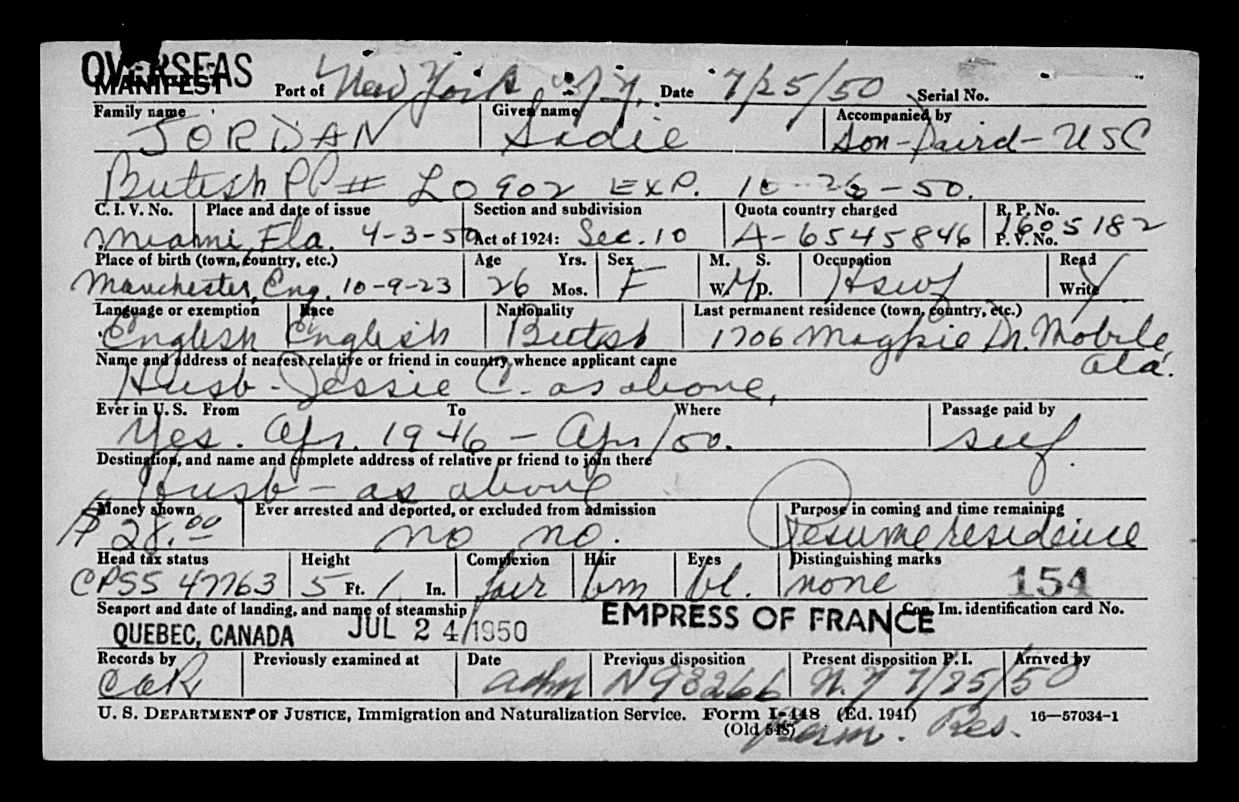 OVERSEAS
MANIFEST Port of New York, N.Y. Date 7/25/50 Serial No.
Family name Given name Accompanied by
JORDAN Sadie Son - David - USC
British PP # L0902 EXP. 10-26-50.
C. I. V. No. Place and date of issue Section and subdivision Quota country charged R. P. No. 1605182
Miami, Fla. 4-3-50 Act of 1924: Sec. 10 A-6545846 P. V. No.
Place of birth (town, country, etc.) Age Yrs. Sex M. S. Occupation Read
Manchester, Eng. 10-9-23 26 Mos. F W. M D. Hswf Write Y
Language or exemption Race Nationality Last permanent residence (town, country, etc.)
English English British 1706 Magpie Dr. Mobile, Ala.
Name and address of nearest relative or friend in country whence applicant came
Husb - Jessie C. as above,
Ever in U. S. From To Where Passage paid by
Yes. Apr. 1946 - Apr/50. self
Destination, and name and complete address of relative or friend to join there
Husb - as above
Money shown Ever arrested and deported, or excluded from admission Purpose in coming and time remaining
$28.00 no no. Resume residence
Head tax status Height Complexion Hair Eyes Distinguishing marks
CPSS 47763 5 Ft. 1 In. fair brn bl. none 154
Seaport and date of landing, and name of steamship Con. Im. identification card No.
QUEBEC, CANADA JUL 24/1950 EMPRESS OF FRANCE
Records by Previously examined at Date Previous disposition Present disposition P. I. Arrived by
adm N98266 N.Y 7/25/50
U. S. DEPARTMENT OF JUSTICE, Immigration and Naturalization Service. Form I-448 (Ed. 1941) 16—57034-1
(Old 548) Perm. Res.